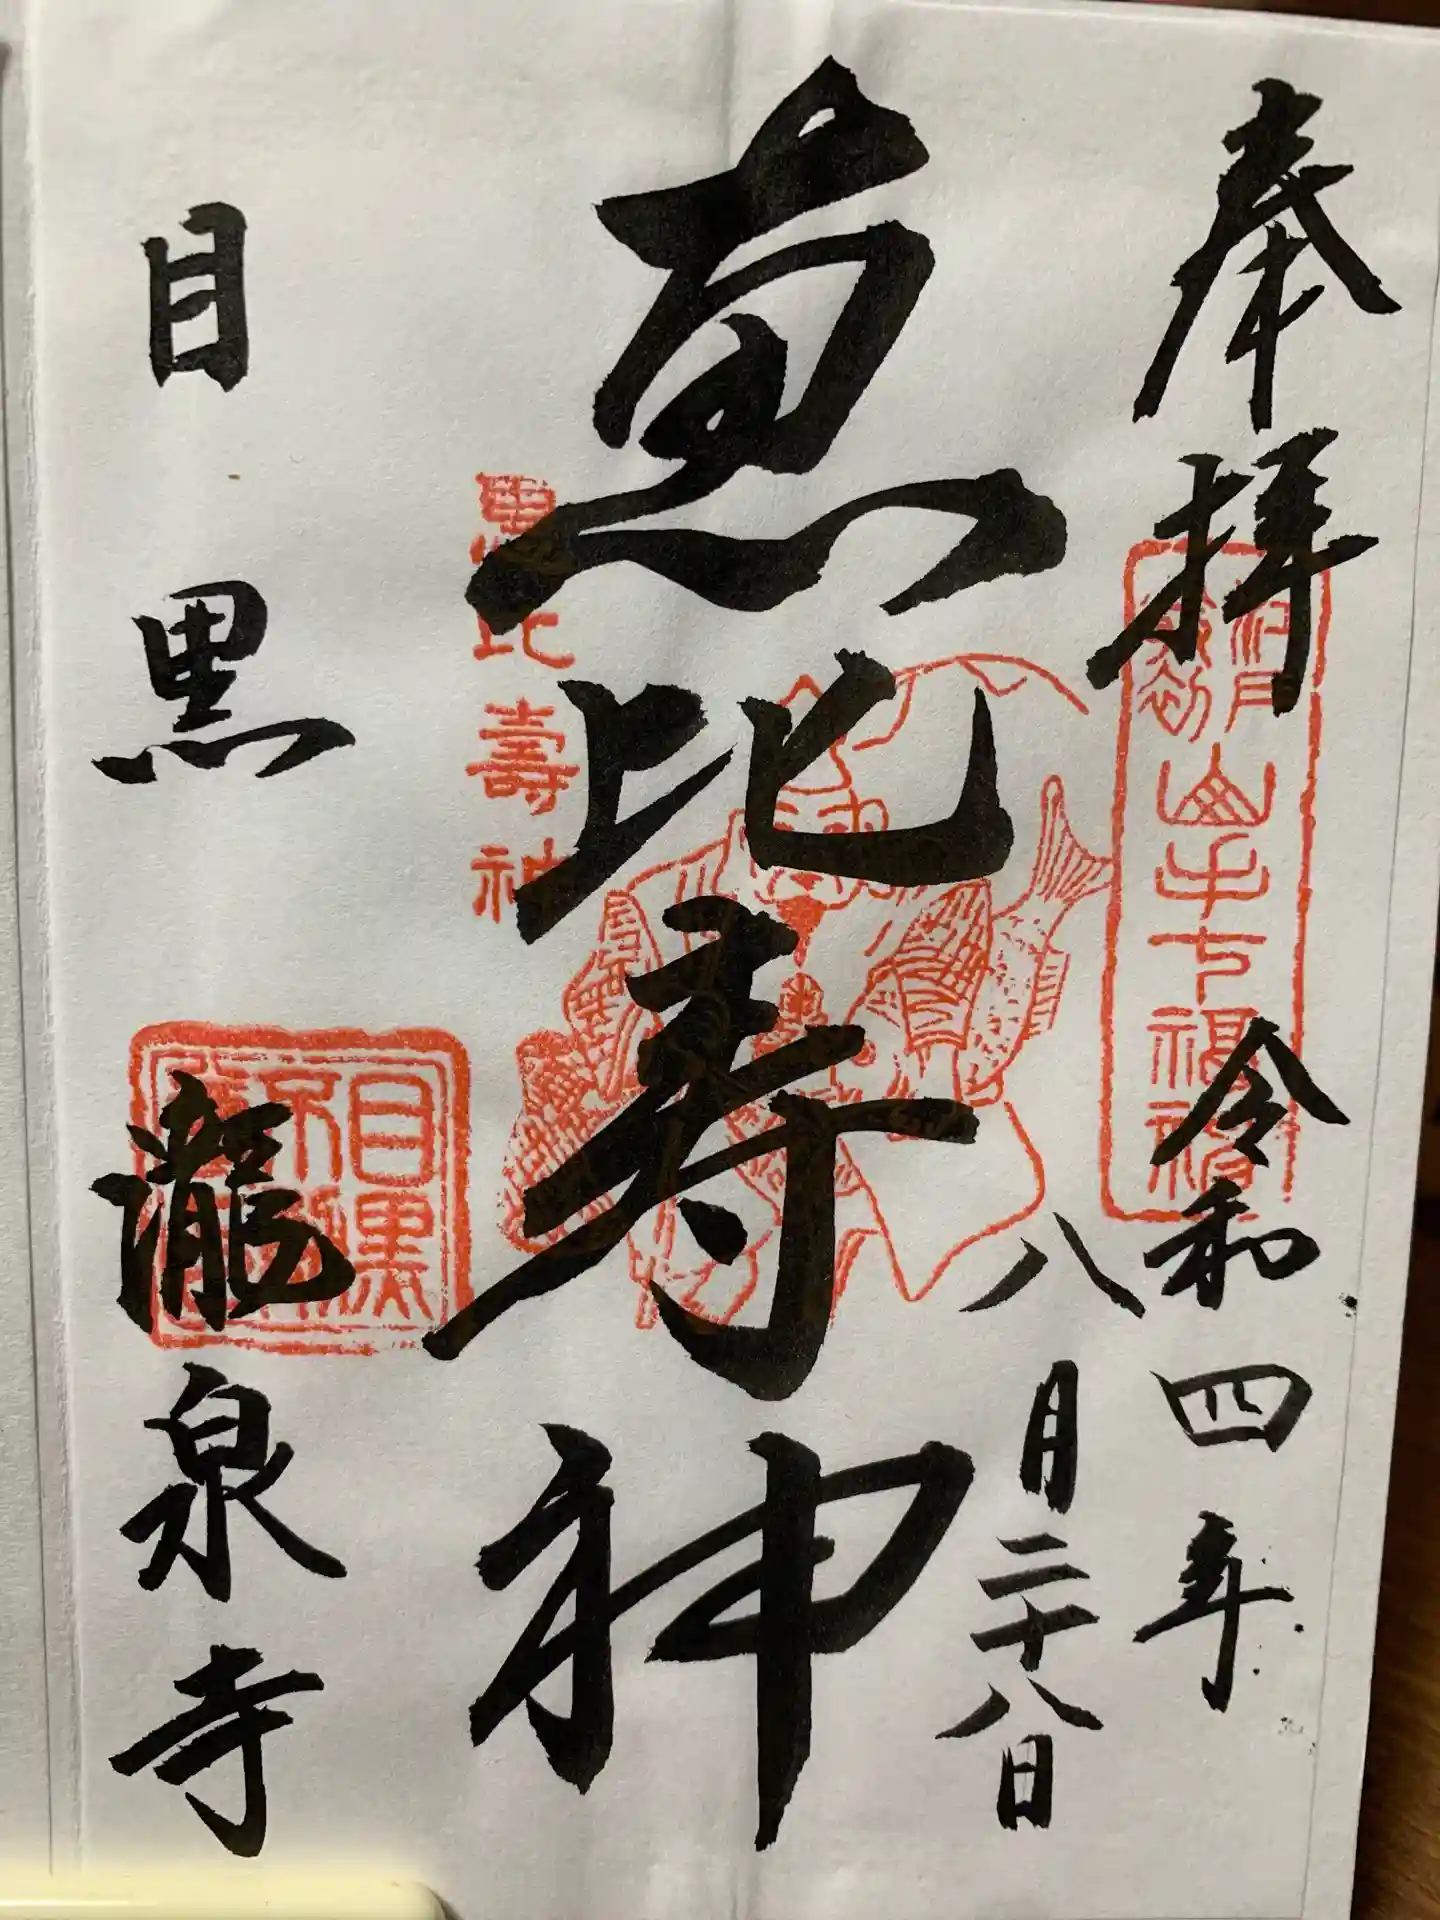 奉拝
令和四年
八月二十八日
江戸
最初
山手七福神
恵比寿神
恵比壽神
目黒
瀧泉寺
目黒
不